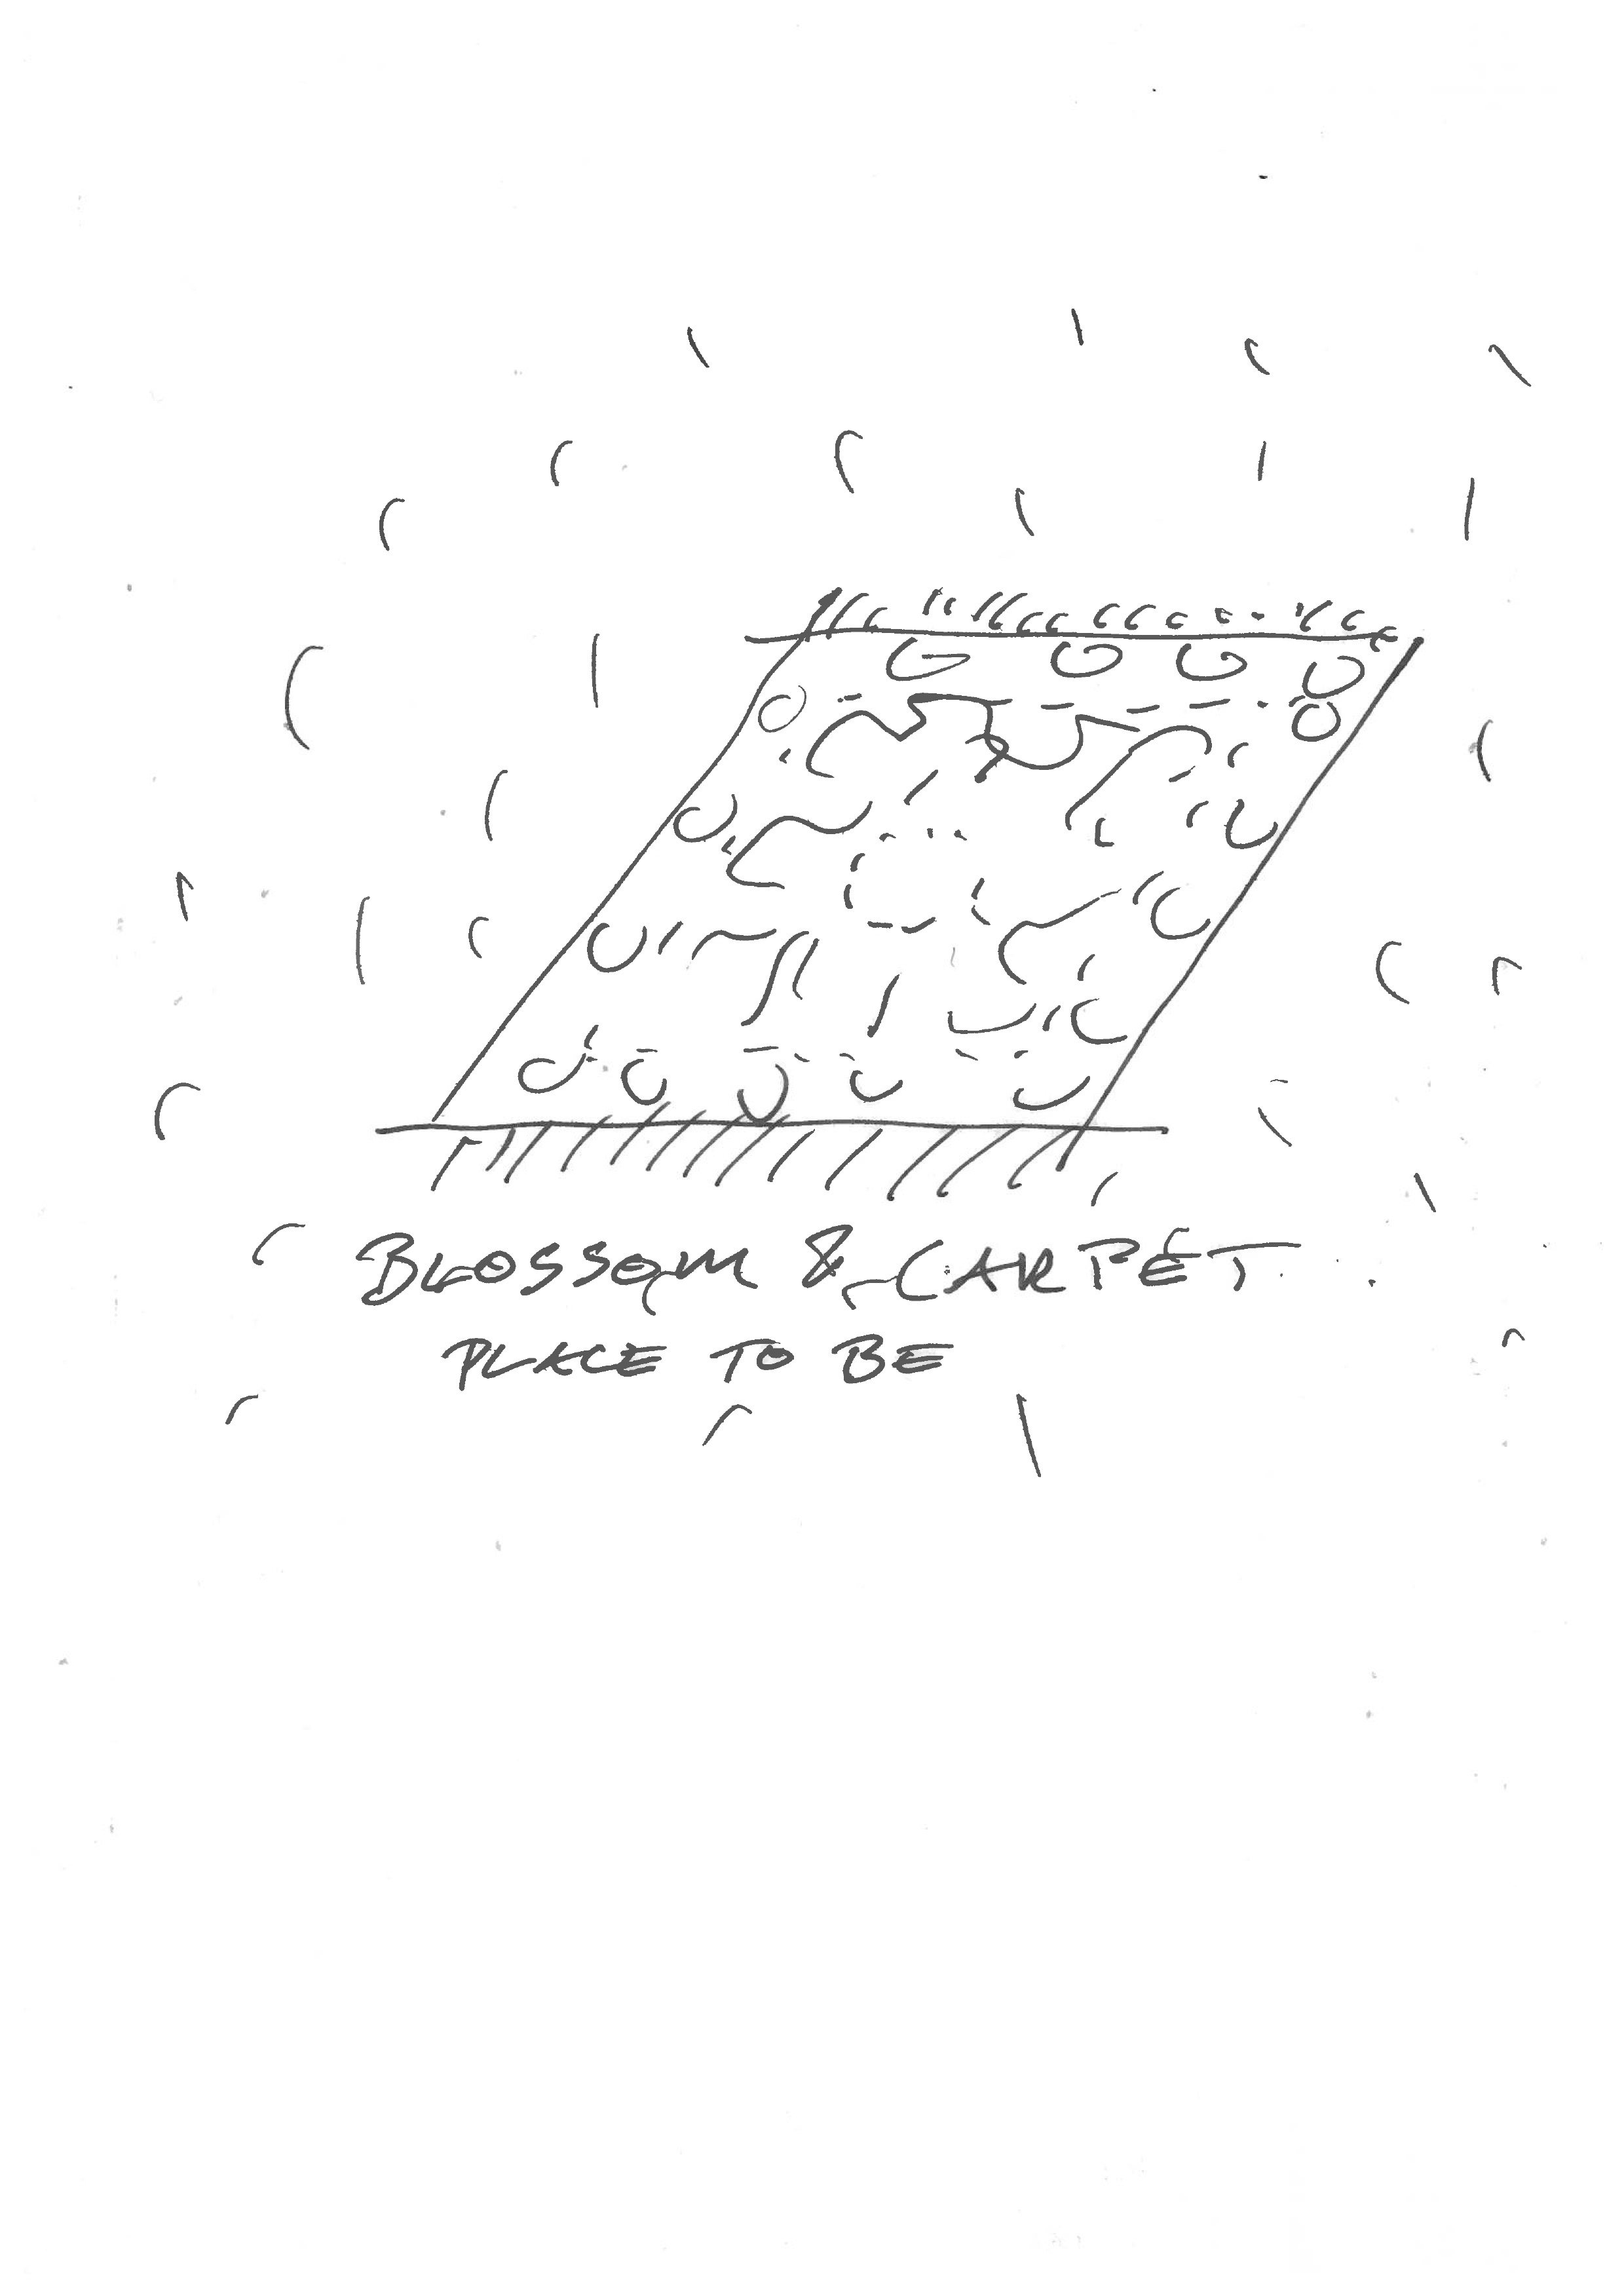 BLOSSOM & CARPET
PLACE TO BE